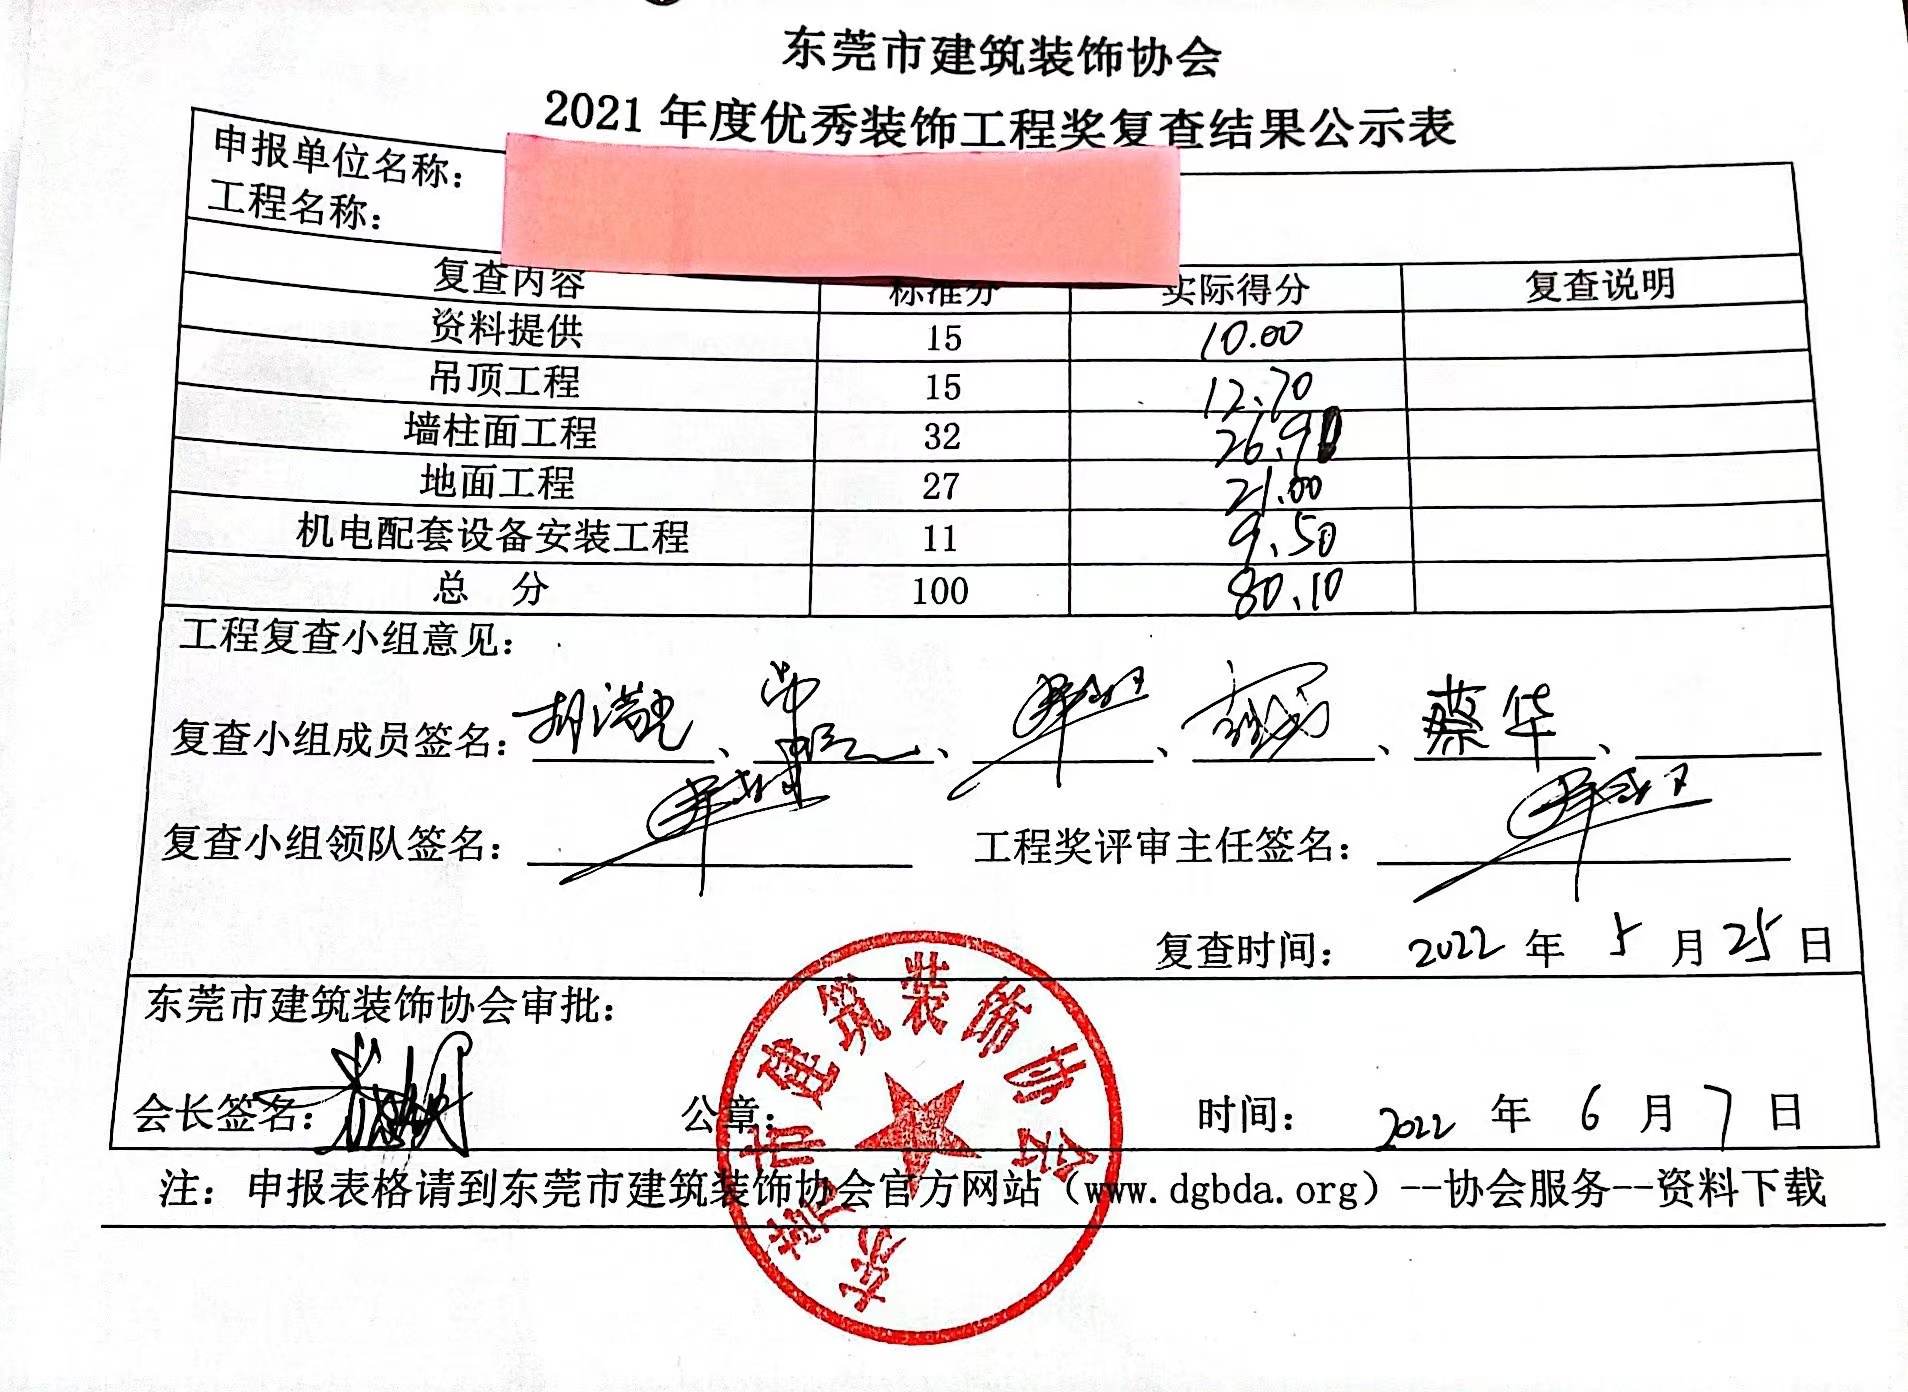 东莞市建筑装饰协会
2021 年度优秀装饰工程奖复查结果公示表
申报单位名称：
工程名称：
复查内容 标准分 实际得分 复查说明
资料提供 15 10.00
吊顶工程 15 12.70
墙柱面工程 32 26.90
地面工程 27 21.00
机电配套设备安装工程 11 9.50
总 分 100 80.10
工程复查小组意见：
复查小组成员签名： 、 、 、 、 蔡华 、
复查小组领队签名： 工程奖评审主任签名：
复查时间： 2022 年 5 月 25 日
东莞市建筑装饰协会审批：
会长签名： 公章： 时间： 2022 年 6 月 7 日
东莞市建筑装饰协会
注：申报表格请到东莞市建筑装饰协会官方网站（www.dgbda.org）--协会服务--资料下载